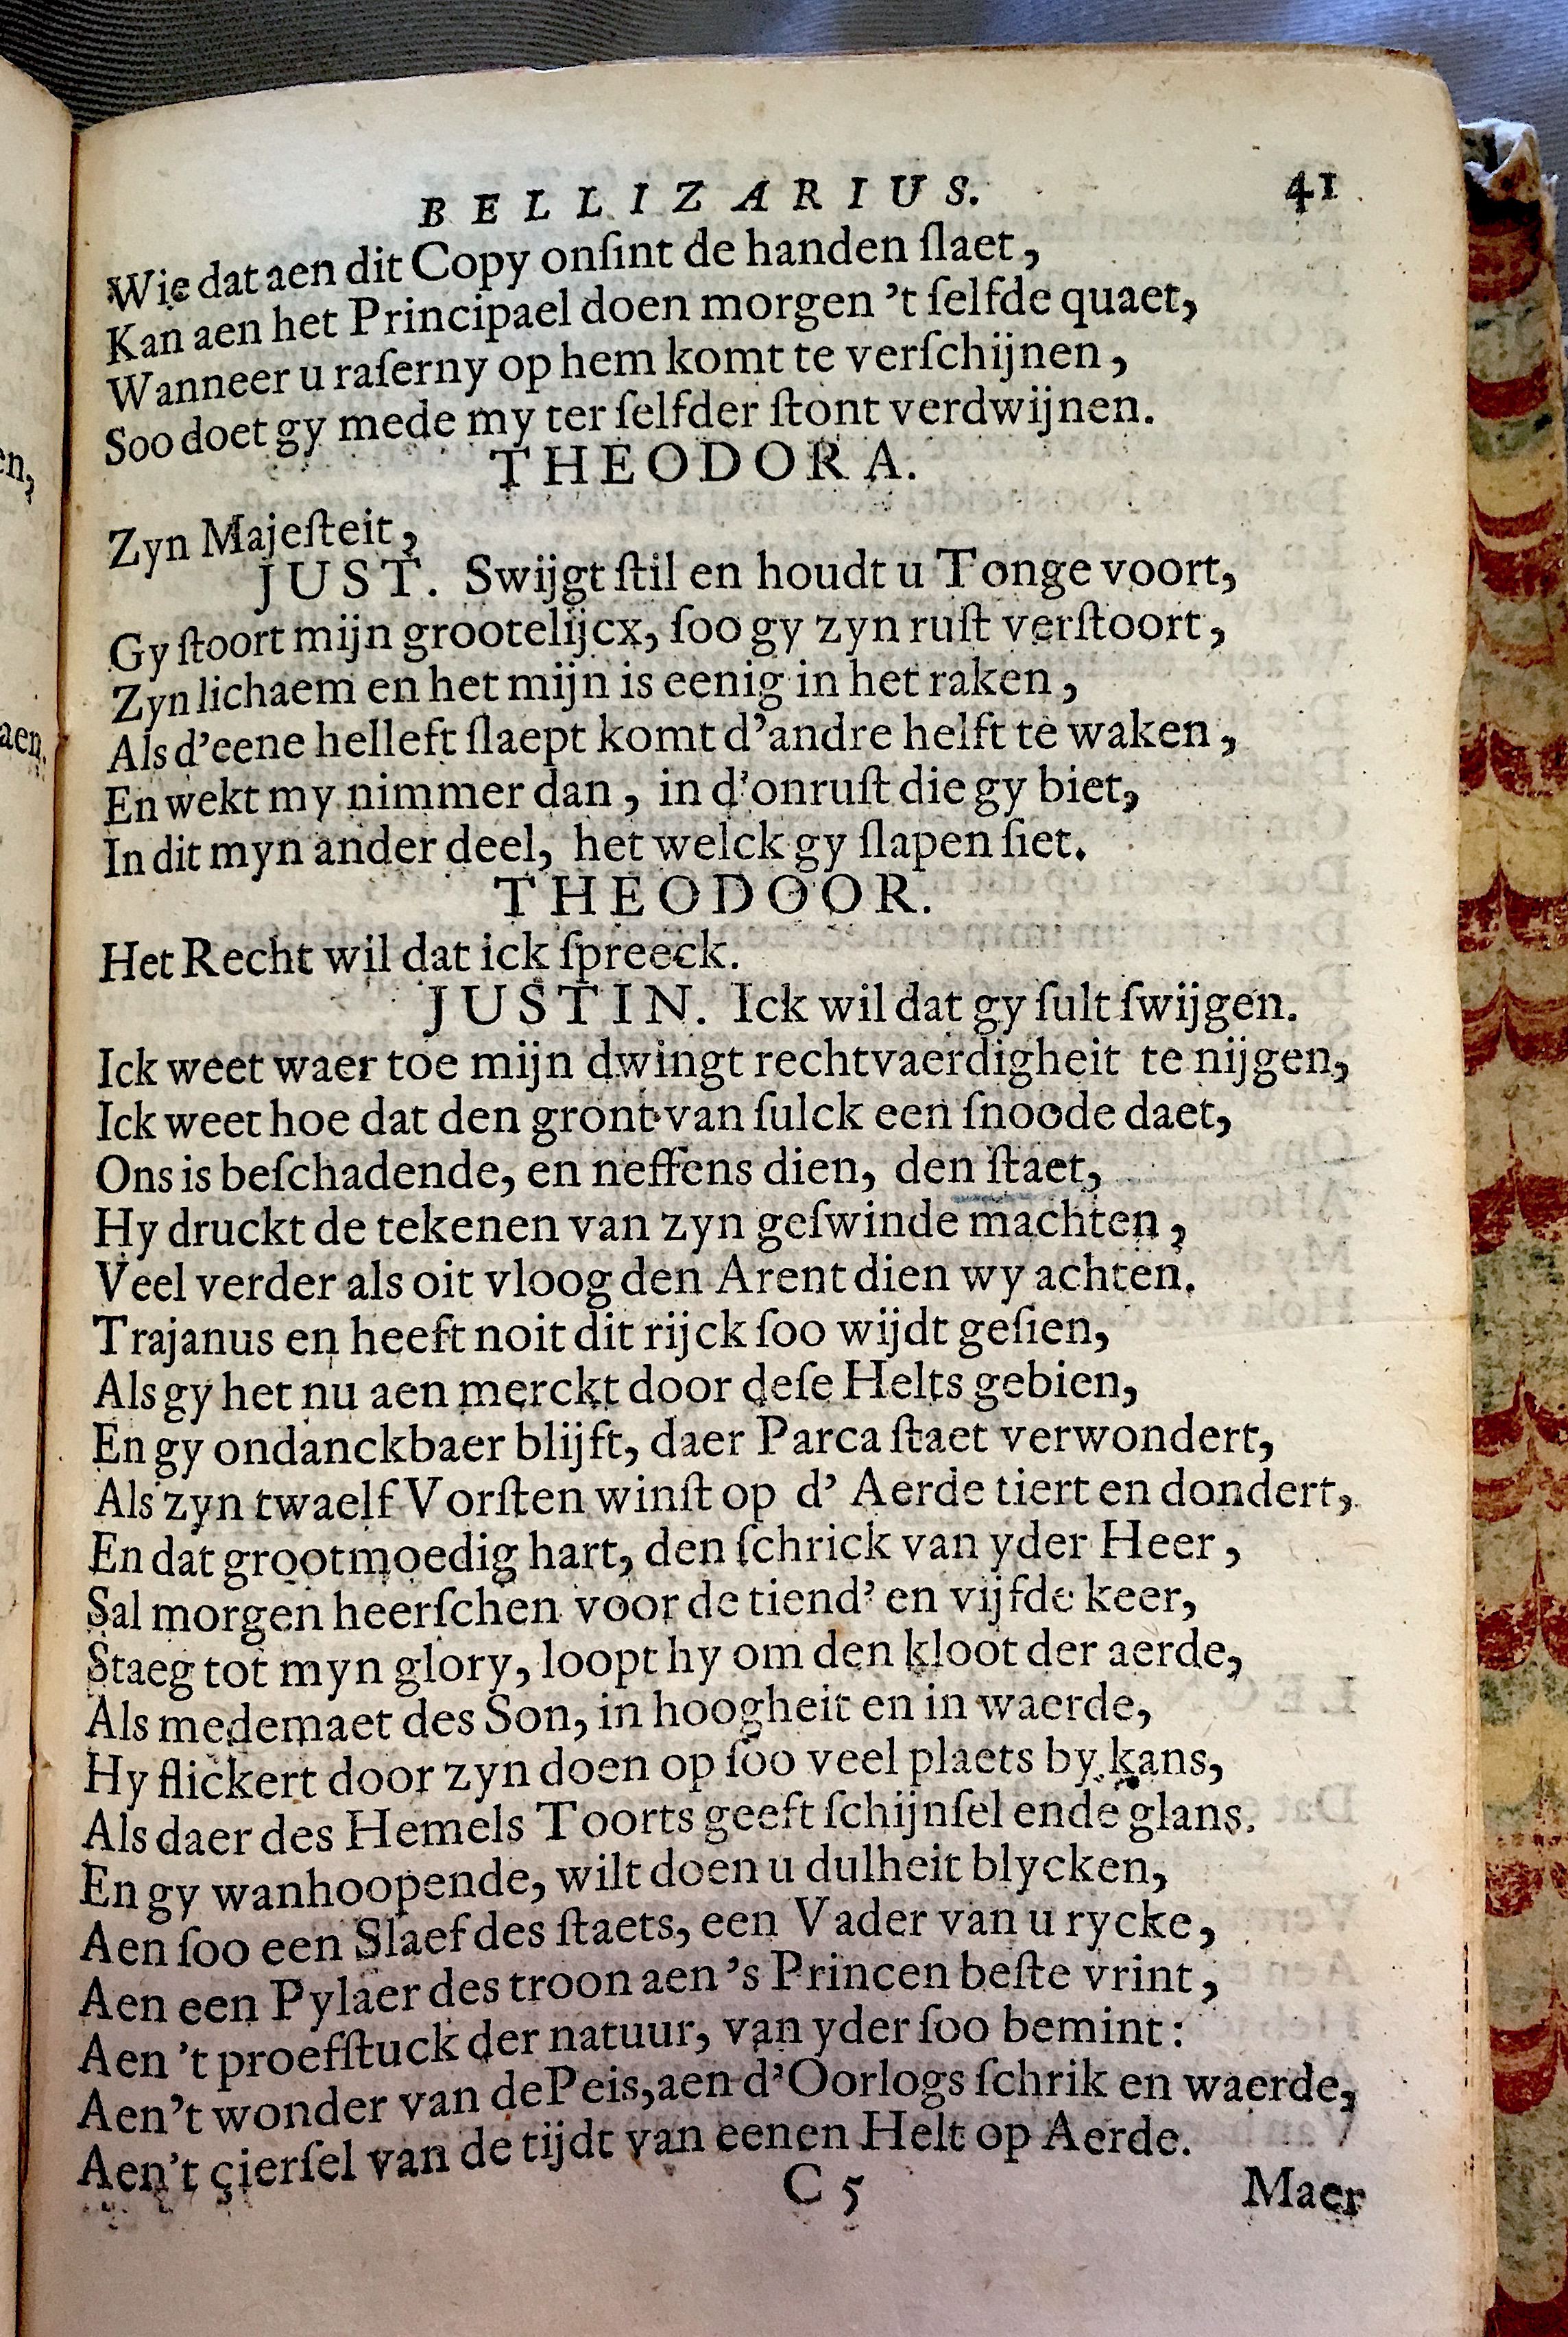 BELLIZARIUS. 41
Wie dat aen dit Copy onſint de handen ſlaet,
Kan aen het Principael doen morgen ’t ſelfde quaet,
Wanneer u raſerny op hem komt te verſchijnen,
Soo doet gy mede my ter ſelfder ſtont verdwijnen.
THEODORA.
Zyn Majeſteit,
JUST. Swijgt ſtil en houdt u Tonge voort,
Gy ſtoort mijn grootelijcx, ſoo gy zyn ruſt verſtoort,
Zyn lichaem en het mijn is eenig in het raken,
Als d’eene helleft ſlaept komt d’andre helft te waken,
En wekt my nimmer dan, in d’onruſt die gy biet,
In dit myn ander deel, het welck gy ſlapen ſiet.
THEODOOR.
Het Recht wil dat ick ſpreeck.
JUSTIN. Ick wil dat gy ſult ſwijgen.
Ick weet waer toe mijn dwingt rechtvaerdigheit te nijgen,
Ick weet hoe dat den gront van ſulck een ſnoode daet,
Ons is beſchadende, en neffens dien, den ſtaet,
Hy druckt de tekenen van zyn geſwinde machten,
Veel verder als oit vloog den Arent dien wy achten.
Trajanus en heeft noit dit rijck ſoo wijdt geſien,
Als gy het nu aen merckt door deſe Helts gebien,
En gy ondanckbaer blijft, daer Parca ſtaet verwondert,
Als zyn twaelf Vorſten winſt op d’ Aerde tiert en dondert,
En dat grootmoedig hart, den ſchrick van yder Heer,
Sal morgen heerſchen voor de tiend’ en vijfde keer,
Staeg tot myn glory, loopt hy om den kloot der aerde,
Als medemaet des Son, in hoogheit en in waerde,
Hy flickert door zyn doen op ſoo veel plaets by kans,
Als daer des Hemels Toorts geeft ſchijnſel ende glans.
En gy wanhoopende, wilt doen u dulheit blycken,
Aen ſoo een Slaef des ſtaets, een Vader van u rycke,
Aen een Pylaer des troon aen ’s Princen beſte vrint,
Aen ’t proefſtuck der natuur, van yder ſoo bemint:
Aen’t wonder van de Peis, aen d’Oorlogs ſchrik en waerde,
Aen’t çierſel van de tijdt van eenen Helt op Aerde.
C 5 Maer